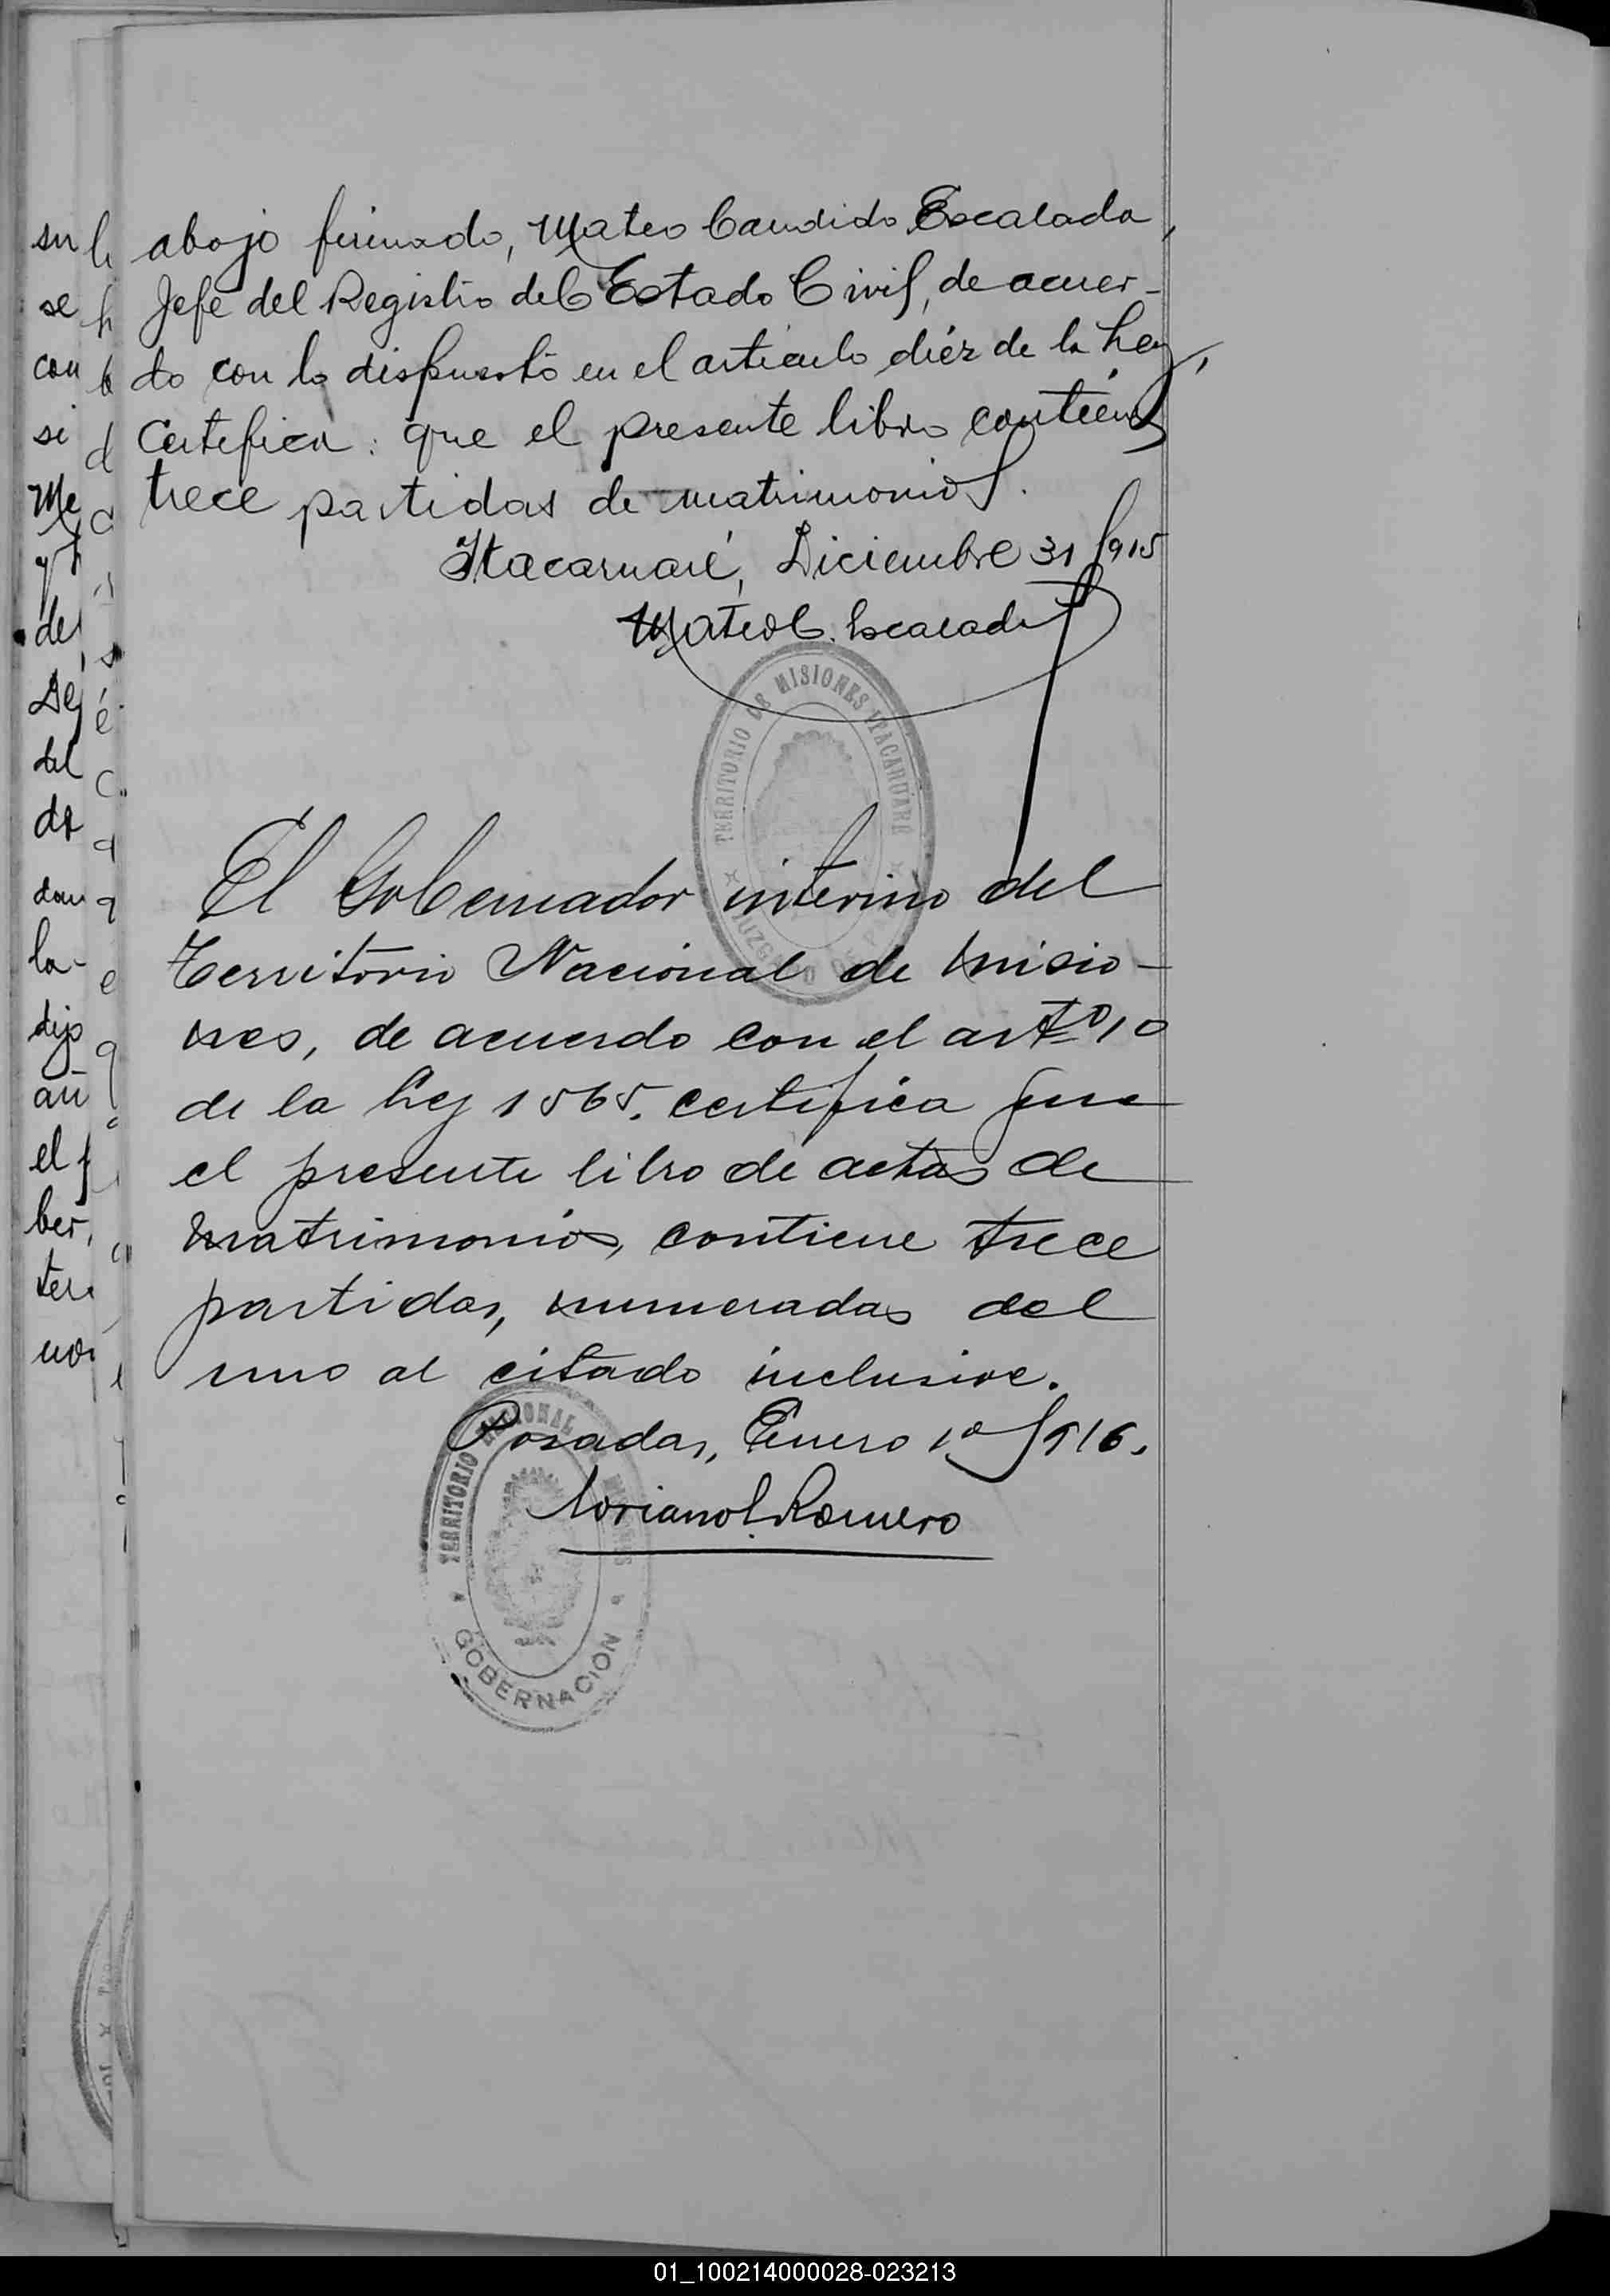 abajo firmado, Mateo Candido Escalada,
Jefe del Registro del Estado Civil, de acuer-
do con lo dispuesto en el articulo diéz de la Ley,
Certifica: que el presente libro contiene
trece partidas de matrimonios.
Itacaruaré, Diciembre 31/915
Mateo C. Escalada
TERRITORIO DE MISIONES ITACARUARE
JUZGADO DE PAZ
El Gobernador interino del
Territorio Nacional de Misio-
nes, de acuerdo con el artº 10
de la Ley 1565. certifica que
el presente libro de actas de
matrimonios, contiene trece
partidas, numeradas del
uno al citado inclusive.
Posadas, Enero 1º/916.
Romero
TERRITORIO NACIONAL DE MISIONES
GOBERNACION
01_100214000028-023213